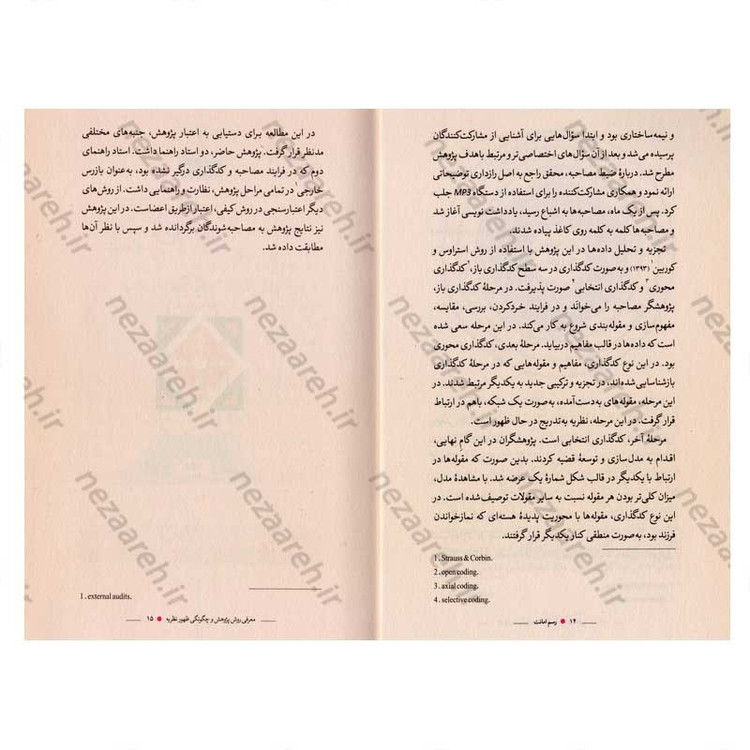 و نیمه‌ساختاری بود و ابتدا سؤال‌هایی برای آشنایی از مشارکت‌کنندگان
پرسیده می‌شد و بعد از آن سؤال‌های اختصاصی‌تر و مرتبط با هدف پژوهش
مطرح شد. دربارهٔ ضبط مصاحبه، محقق راجع به اصل رازداری توضیحاتی
ارائه نمود و همکاری مشارکت‌کننده را برای استفاده از دستگاه MP3 جلب
کرد. پس از یک ماه، مصاحبه‌ها به اشباع رسید، یادداشت نویسی آغاز شد
و مصاحبه‌ها کلمه به کلمه روی کاغذ پیاده شدند.
تجزیه و تحلیل داده‌ها در این پژوهش با استفاده از روش استراوس و
کوربین۱ (۱۳۹۳) و به صورت کدگذاری در سه سطح کدگذاری باز،۲ کدگذاری
محوری۳ و کدگذاری انتخابی۴ صورت پذیرفت. در مرحلهٔ کدگذاری باز،
پژوهشگر مصاحبه را می‌خوانَد و در فرایند خردکردن، بررسی، مقایسه،
مفهوم‌سازی و مقوله‌بندی شروع به کار می‌کند. در این مرحله سعی شده
است که داده‌ها در قالب مفاهیم دربیاید. مرحلهٔ بعدی، کدگذاری محوری
بود. در این نوع کدگذاری، مفاهیم و مقوله‌هایی که در مرحلهٔ کدگذاری
بازشناسایی شده‌اند، در تجزیه و ترکیبی جدید به یکدیگر مرتبط شدند. در
این مرحله، مقوله‌های به‌دست‌آمده، به‌صورت یک شبکه، باهم در ارتباط
قرار گرفت. در این مرحله، نظریه به‌تدریج در حال ظهور است.
مرحلهٔ آخر، کدگذاری انتخابی است. پژوهشگران در این گامِ نهایی،
اقدام به مدل‌سازی و توسعهٔ قضیه کردند. بدین صورت که مقوله‌ها در
ارتباط با یکدیگر در قالب شکل شمارهٔ یک عرضه شد. با مشاهدهٔ مدل،
میزان کلی‌تر بودن هر مقوله نسبت به سایر مقولات توصیف‌شده است. در
این نوع کدگذاری، مقوله‌ها با محوریت پدیدهٔ هسته‌ای که نمازخواندن
فرزند بود، به‌صورت منطقی کنار یکدیگر قرار گرفتند.
1. Strauss & Corbin.
2. open coding.
3. axial coding.
4. selective coding.
۱۴ رسم امانت
در این مطالعه برای دستیابی به اعتبار پژوهش، جنبه‌های مختلفی
مدنظر قرار گرفت. پژوهش حاضر، دو استاد راهنما داشت. استاد راهنمای
دوم که در فرایند مصاحبه و کدگذاری درگیر نشده بود، به‌عنوان بازرس
خارجی۱ در تمامی مراحل پژوهش، نظارت و راهنمایی داشت. از روش‌های
دیگر اعتبارسنجی در روش کیفی، اعتبار ازطریق اعضاست. در این پژوهش
نیز نتایج پژوهش به مصاحبه‌شوندگان برگردانده شد و سپس با نظر آن‌ها
مطابقت داده شد.
1. external audits.
معرفی روش پژوهش و چگونگی ظهور نظریه ۱۵
nezaareh.ir